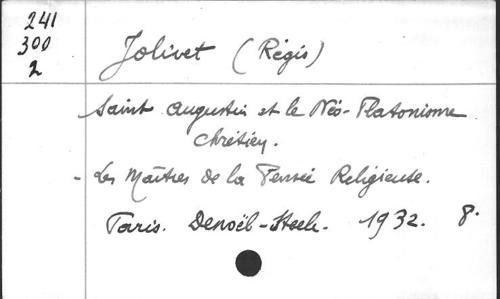 241
300
2
Jolivet (Régis)
Saint Augustin et le Néo-Platonisme
chrétien.
- Les Maîtres de la Pensée Religieuse.
Paris. Denoël-Steele. 1932. 8.